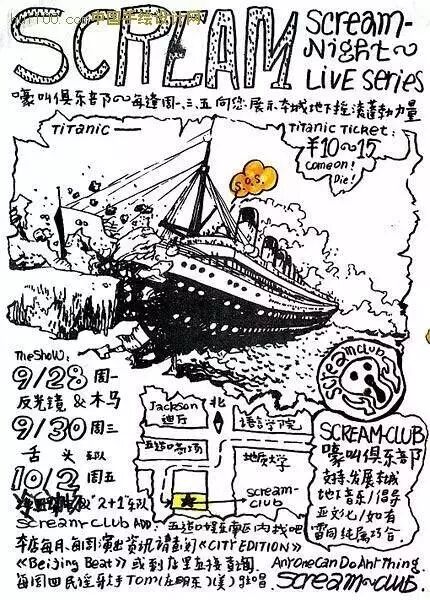 SCREAM
Scream-
Night~
Live Series
嚎叫俱乐部~每逢周一.三.五向您展示本城地下摇滚蓬勃力量
Titanic—
Titanic Ticket:
¥10~15
Come on!
Die!
S.O.S.
The Show:
9/28 周一
反光镜 & 木马
9/30 周三
舌头 乐队
10/2 周五
"2+1"乐队
Jackson
迪厅
北
语言学院
五道口商场
地质大学
Scream-
Club
Screamclub
SCREAM-CLUB
嚎叫俱乐部
支持.发展城
地下音乐/倡导
亚文化/如有
雷同纯属巧合.
Scream-Club ADD: 五道口
内找吧
本店每月.每周演出资讯请查阅《CITY EDITION》
《Beijing Beat》或到店里直接查阅.
Anyone Can Do Anything.
每周四民谣歌手TOM(美)驻唱.
Scream-Club.